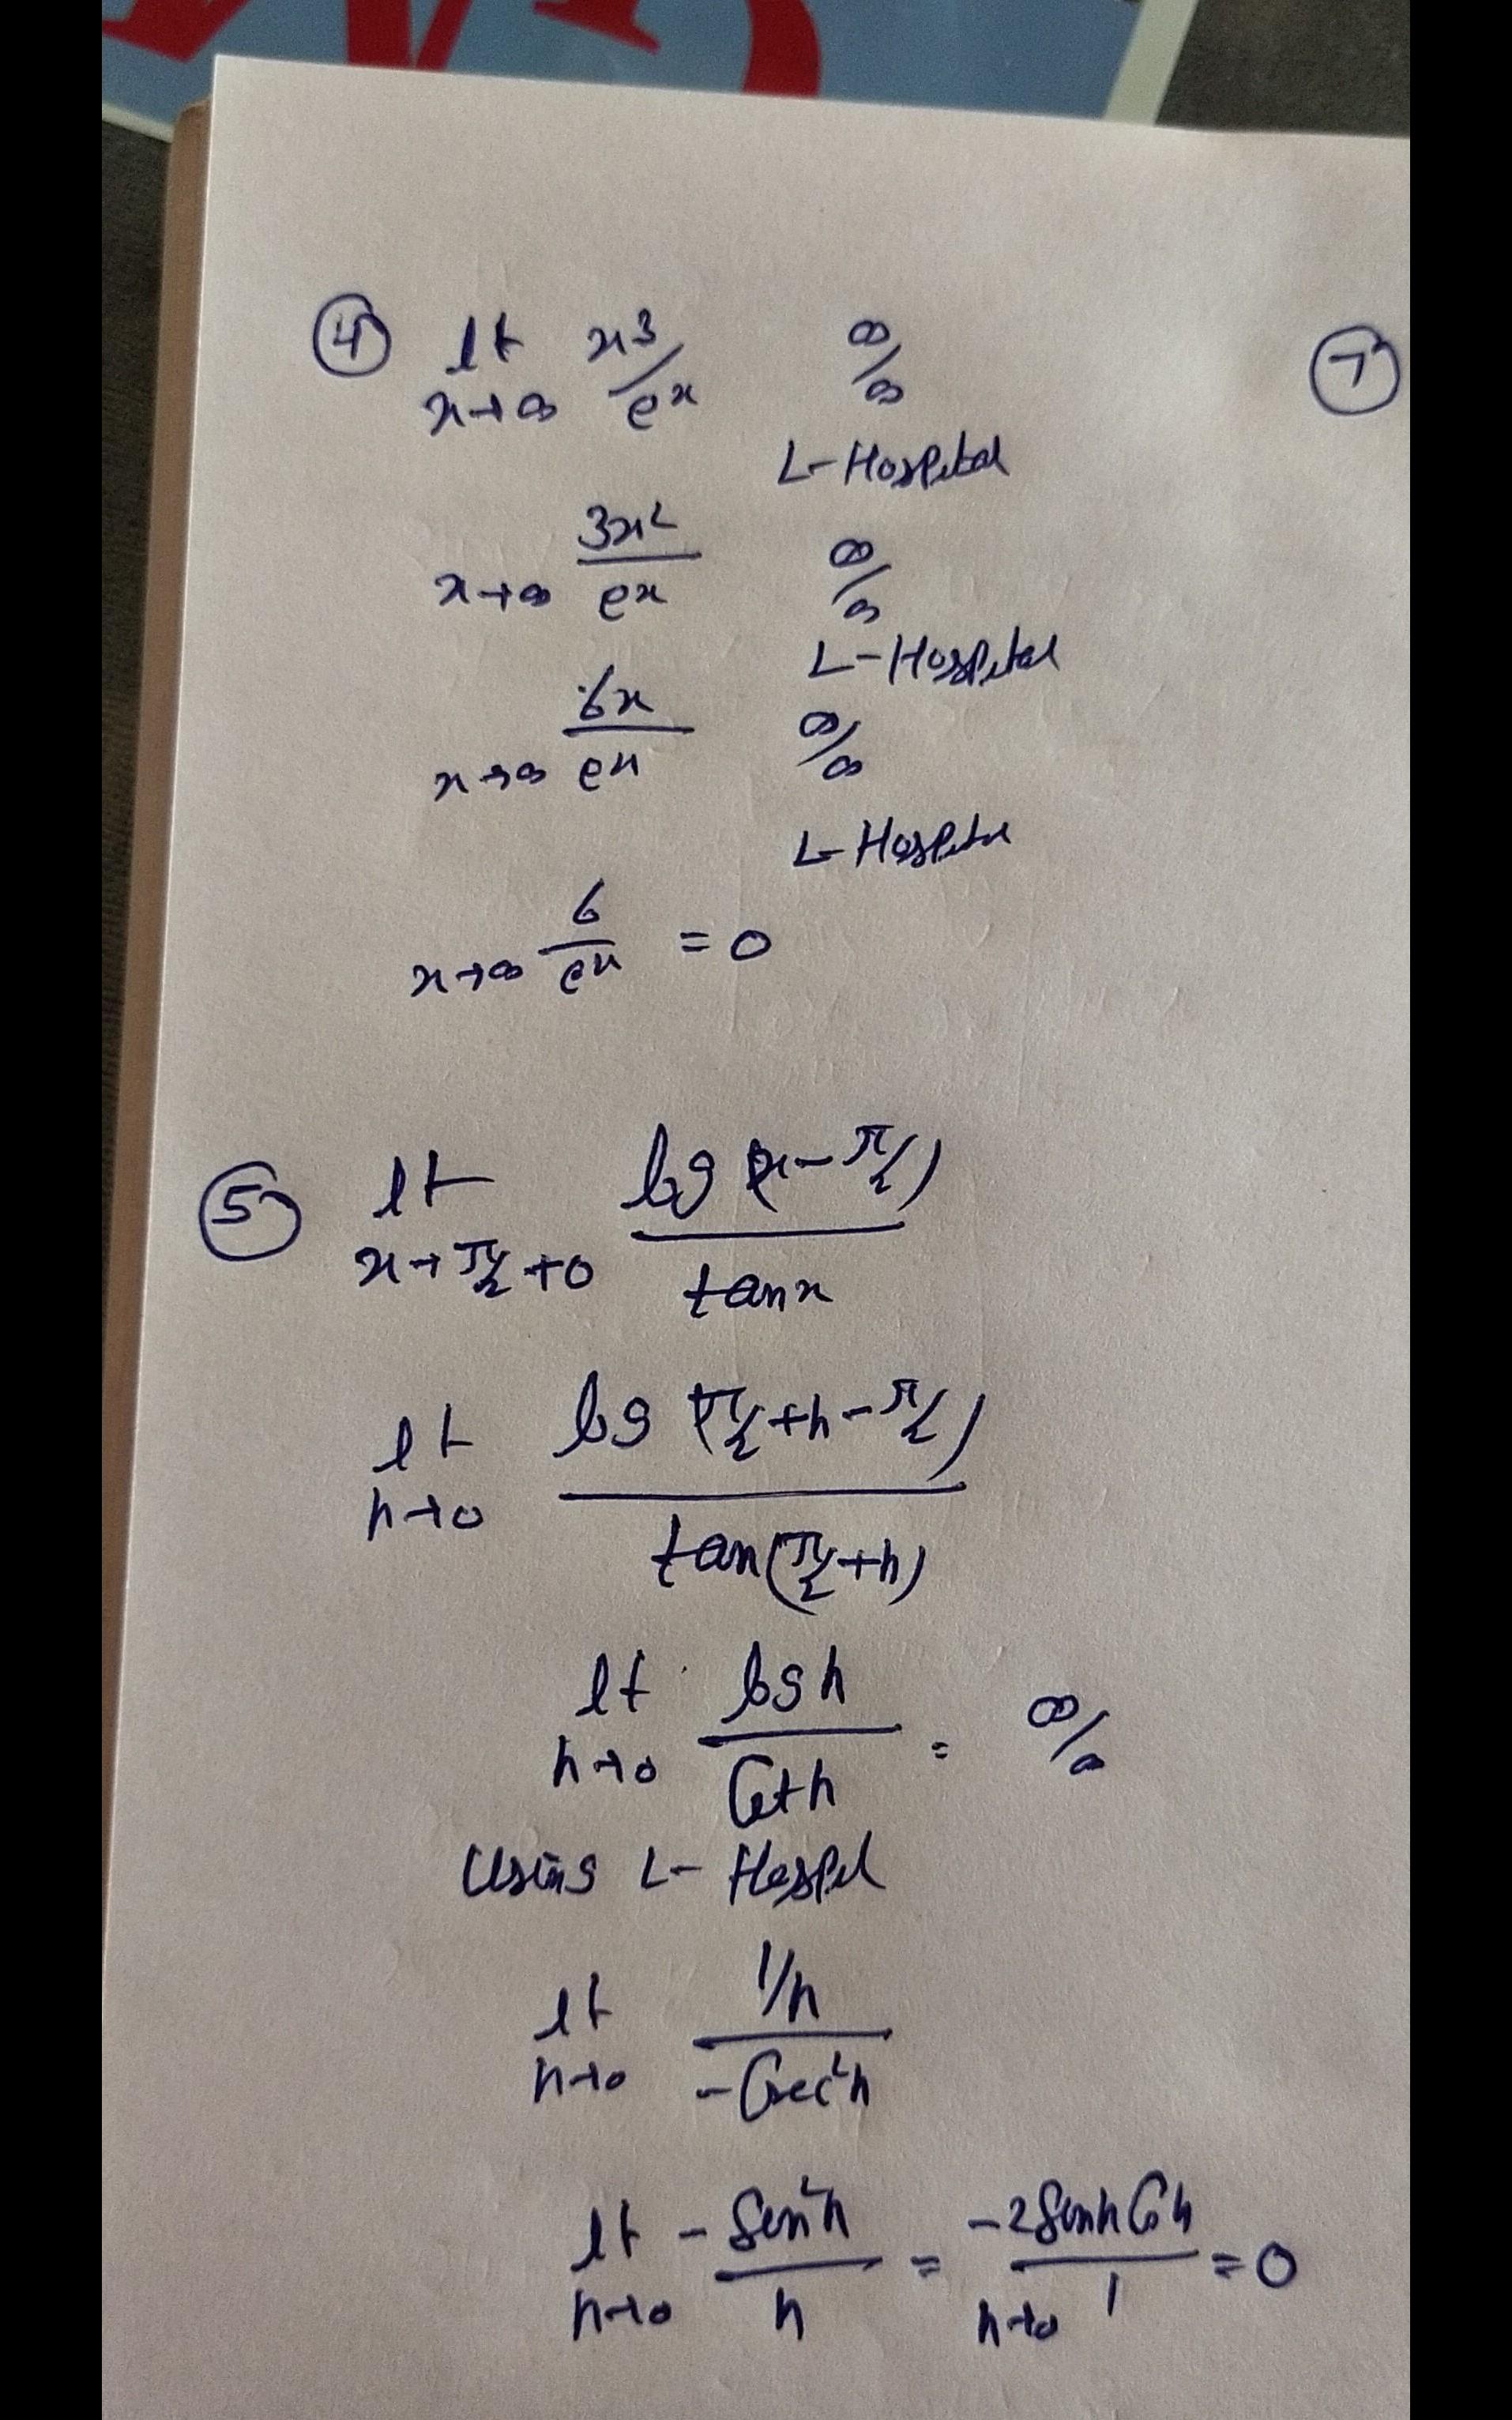 ④ lt x→∞ x³/eˣ ∞/∞
⑦
L-Hospital
x→∞ 3x²/eˣ ∞/∞
L-Hospital
x→∞ 6x/eˣ ∞/∞
L-Hospital
x→∞ 6/eˣ = 0
⑤ lt x→π/2+0 log(x-π/2)/tanx
lt h→0 log(π/2+h-π/2)/tan(π/2+h)
lt h→0 log h/Cot h = ∞/∞
Using L-Hospel
lt h→0 1/h/-Cosec²h
lt h→0 -Sin²h/h = h→0 -2Sinh Cosh/1 = 0